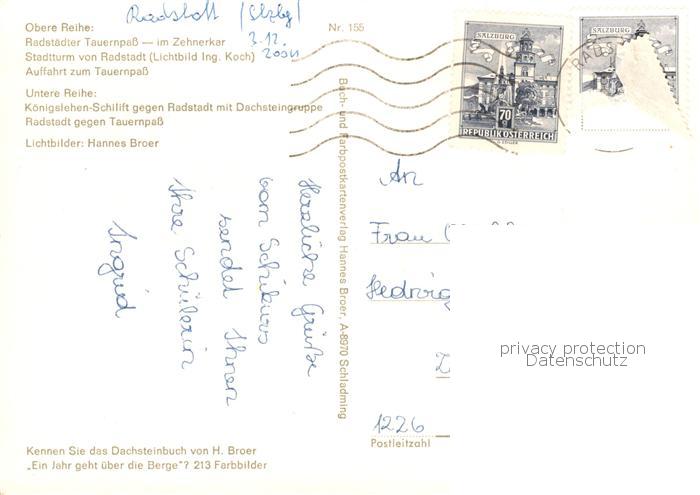 Radstatt (Slzbg)
3.12.
Obere Reihe:
Radstädter Tauernpaß — im Zehnerkar
Stadtturm von Radstadt (Lichtbild Ing. Koch)
Auffahrt zum Tauernpaß
Untere Reihe:
Königslehen-Schilift gegen Radstadt mit Dachsteingruppe
Radstadt gegen Tauernpaß
Lichtbilder: Hannes Broer
Nr. 155
SALZBURG
70
REPUBLIK ÖSTERREICH
SALZBURG
Herzliche Grüße
vom Schikurs
sendet Ihnen
Ihre Schülerin
Ingrid
Buch- und Farbpostkartenverlag Hannes Broer, A-8970 Schladming
An
Frau
Hedwig
1226
Postleitzahl
privacy protection
Datenschutz
Kennen Sie das Dachsteinbuch von H. Broer
„Ein Jahr geht über die Berge"? 213 Farbbilder